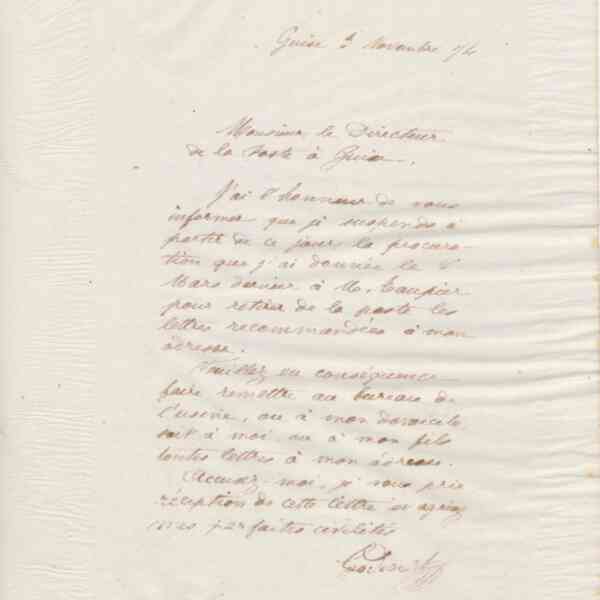 Guise Novembre 74
Monsieur le Directeur
de la Poste à Guise.
J'ai l'honneur de vous
informer que je suspends à
partir de ce jour la procura-
tion que j'ai donnée le
Mars dernier à M.
pour retirer de la poste les
lettres recommandées à mon
adresse.
Veuillez en conséquence
faire remettre au bureau de
l'usine, ou à mon domicile
soit à moi ou à mon fils
toutes lettres à mon adresse.
Accusez-moi, je vous prie
réception de cette lettre et agréez
mes parfaites civilités
Godin